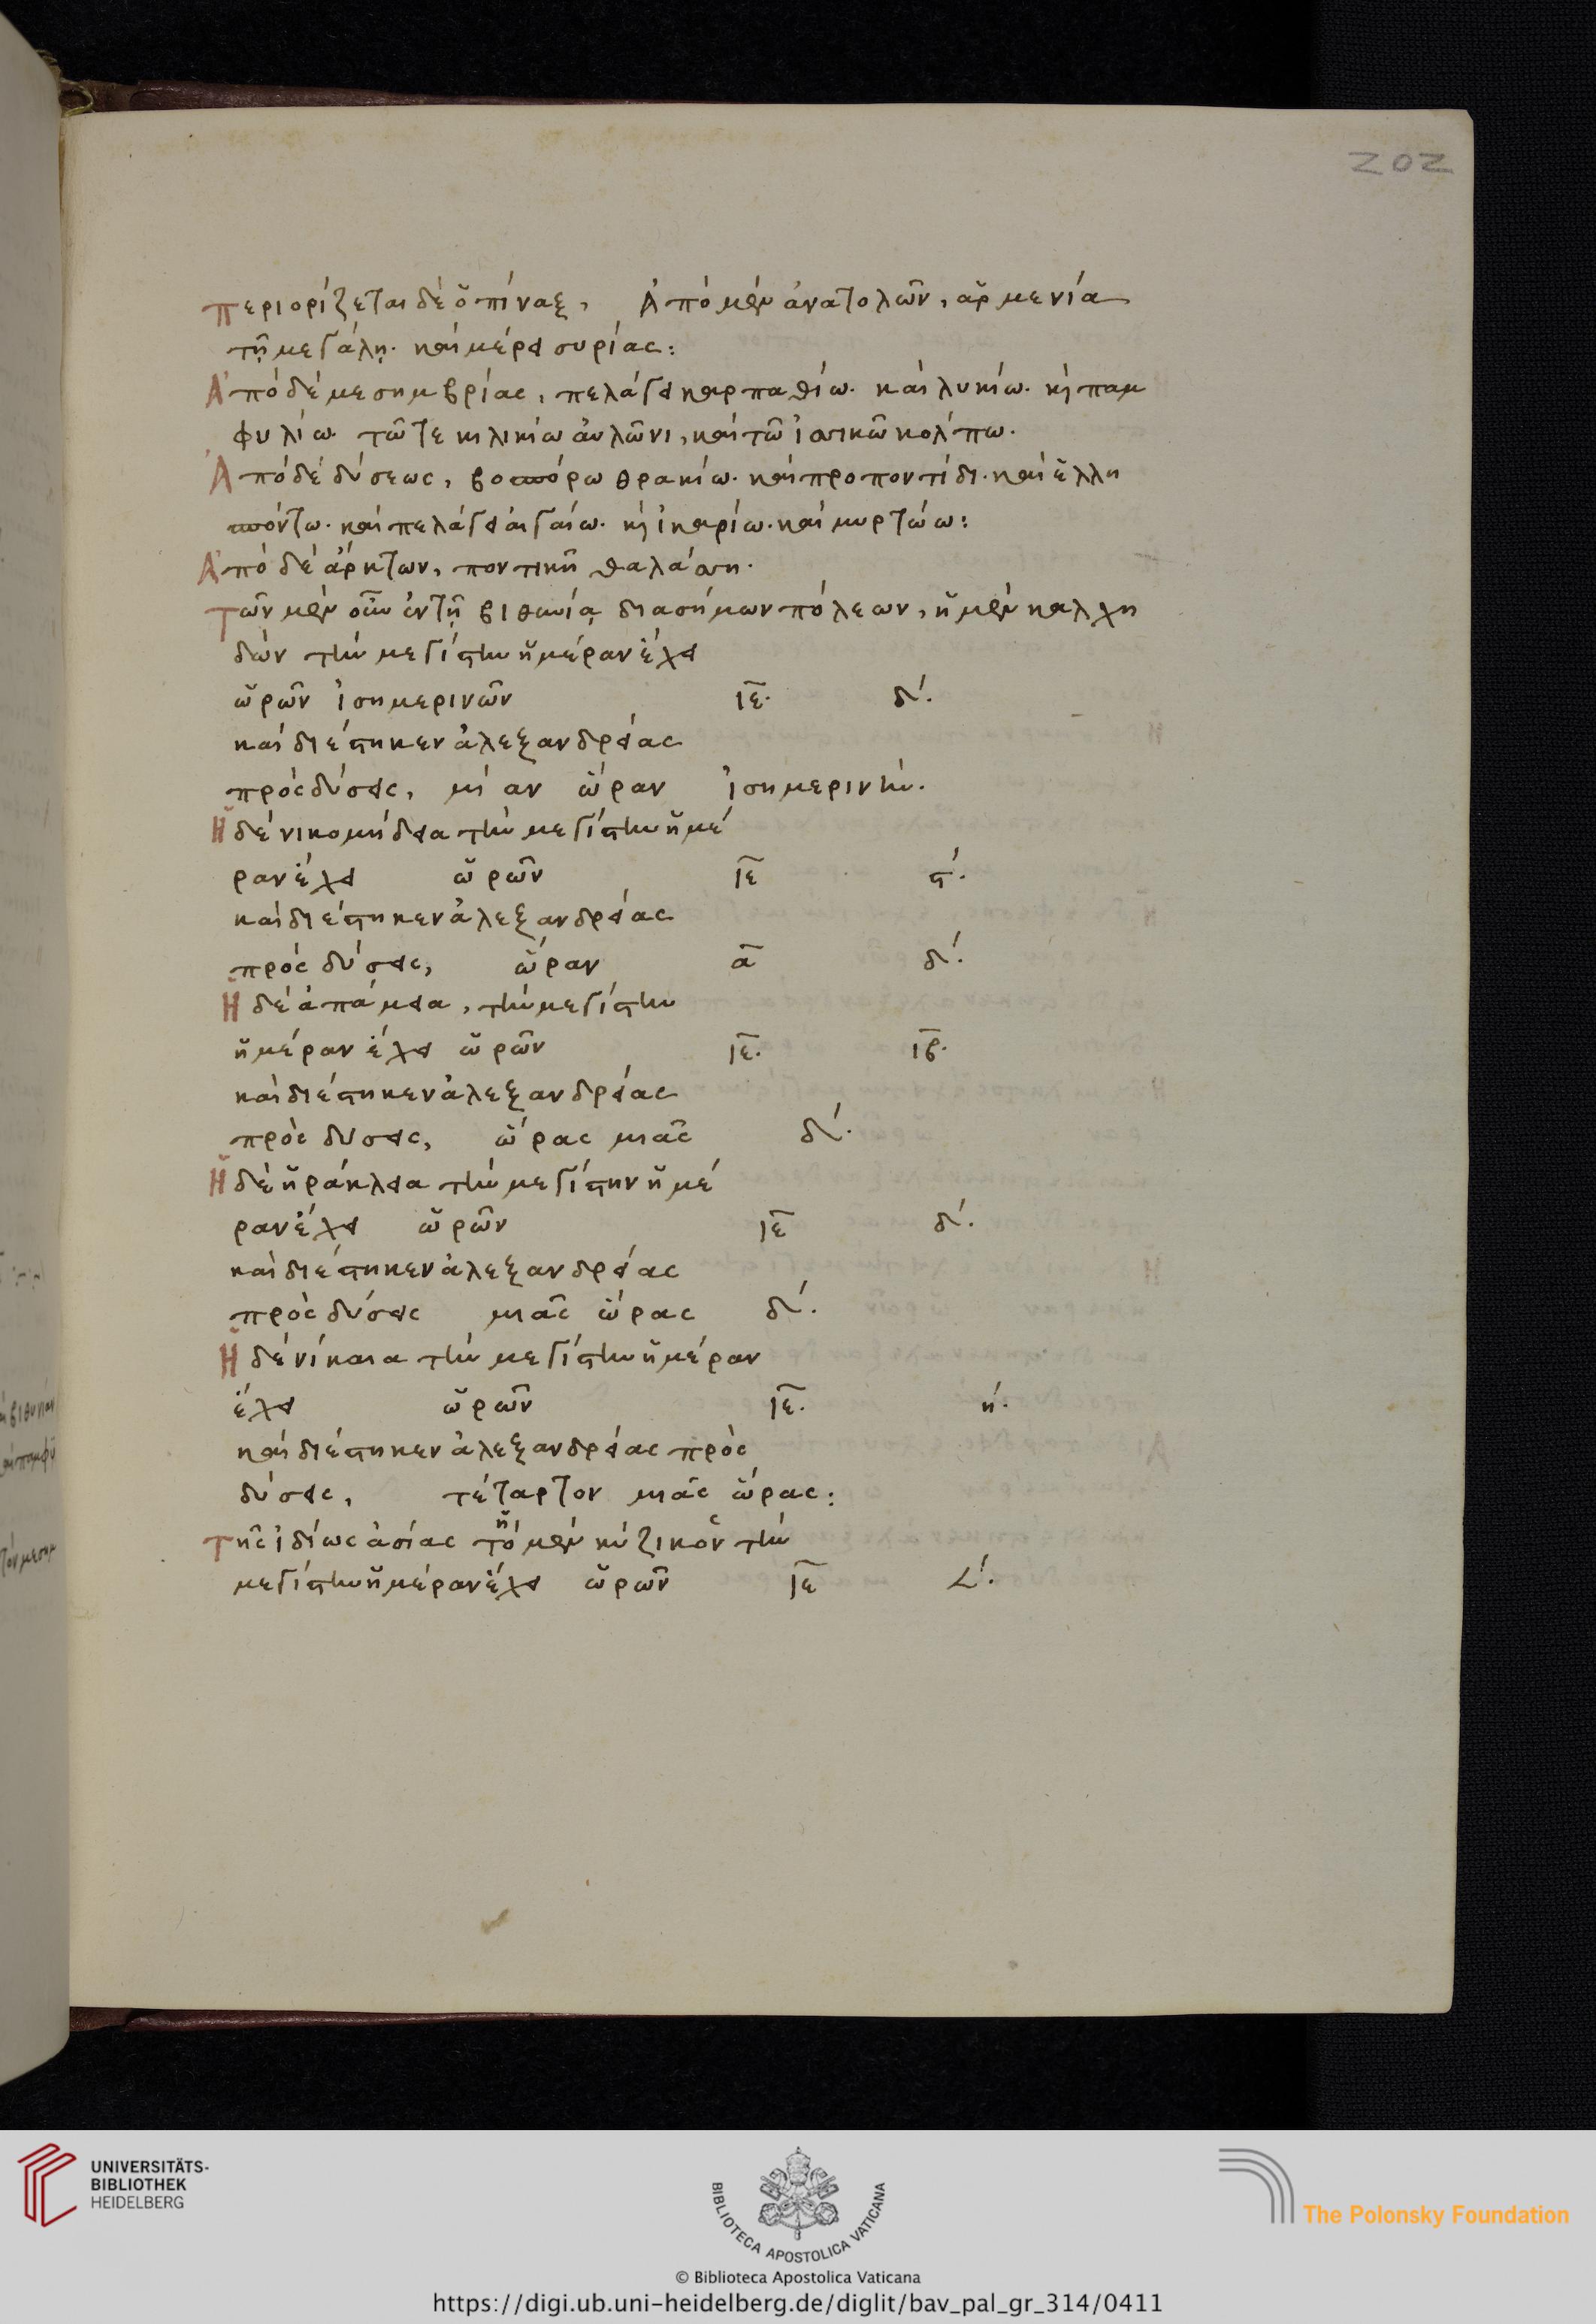 202
περιορίζεται δὲ ὁ πίναξ, Ἀπὸ μὲν ἀνατολῶν, ἀρμενία
τῇ μεγάλῃ. καὶ μέρει συρίας:
Ἀπὸ δὲ μεσημβρίας, πελάγει καρπαθίω. καὶ λυκίω. κὶ παμ
φυλίω. τῶ τε κιλικίω ἀυλῶνι, καὶ τῶ ἰσσικῶ κόλπω.
Ἀπὸ δὲ δύσεως, βοσπόρω θρακίω. καὶ προποντίδι. καὶ ἑλλη
σπόντω. καὶ πελάγει ἀιγαίω. κὶ ἰκαρίω. καὶ μυρτώω:
Ἀπὸ δὲ ἄρκτων, ποντικῆ θαλάσση.
τῶν μὲν οὖν ἐν τῇ βιθυνίᾳ διασήμων πόλεων, ἡ μὲν καλχη
δὼν τὴν μεγίστην ἡμέραν ἔχει
ὡρῶν ἰσημερινῶν ιε. δ´.
καὶ διέστηκεν ἀλεξανδρείας
πρὸς δύσεις, μίαν ὥραν ἰσημερινήν.
Ἡ δὲ νικομήδεια τὴν μεγίστην ἡμέ
ραν ἔχει ὡρῶν ιε ϛ´.
καὶ διέστηκεν ἀλεξανδρείας
πρὸς δύσεις, ὥραν α δ´.
Ἡ δὲ ἀπάμεια, τὴν μεγίστην
ἡμέραν ἔχει ὡρῶν ιε. ιβ.
καὶ διέστηκεν ἀλεξανδρείας
πρὸς δυσεις, ὥρας μιᾶς δ´.
Ἡ δὲ ἡράκλεια τὴν μεγίστην ἡμέ
ραν ἔχει ὡρῶν ιε δ´.
καὶ διέστηκεν ἀλεξανδρείας
πρὸς δύσεις μιᾶς ὥρας δ´.
Ἡ δὲ νίκαια τὴν μεγίστην ἡμέραν
ἔχει ὡρῶν ιε. η´.
καὶ διέστηκεν ἀλεξανδρείας πρὸς
δύσεις, τέταρτον μιᾶς ὥρας:
τῆς ἰδίως ἀσίας τὸ μὲν κύζικον τὴν
μεγίστην ἡμέραν ἔχει ὡρῶν ιε ∠´.
UNIVERSITÄTS-
BIBLIOTHEK
HEIDELBERG
BIBLIOTECA APOSTOLICA VATICANA
© Biblioteca Apostolica Vaticana
The Polonsky Foundation
https://digi.ub.uni-heidelberg.de/diglit/bav_pal_gr_314/0411